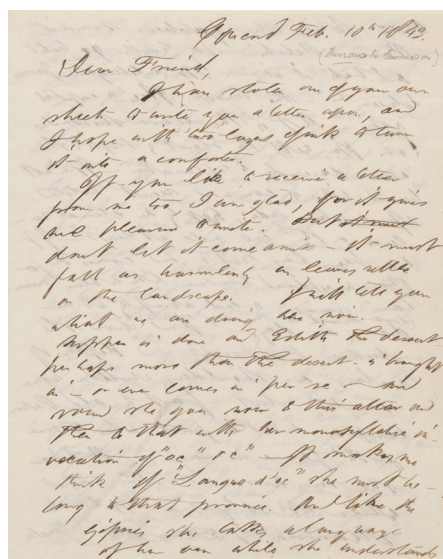 Concord Feb. 10th 1843.
(Thoreau to Emerson)
Dear Friend,
I have stolen one of your own
sheets to write you a letter upon, and
I hope with two layers of ink to turn
it into a comforter.
If you like to receive a letter
from me too, I am glad, for it gives
me pleasure to write. But
don't let it come amiss — it must
fall as harmlessly as leaves settle
on the landscape. I will tell you
what we are doing here now.
Supper is done and Edith the dessert
perhaps more than the desert is brought
in — or even comes in per se — and
round she goes now to this altar and
then to that with her monosyllabic in-
vocation of "oc" "oc" — It makes me
think of "Langue d'oc" she must be-
long to that province. And like the
gipsies she talks a language
of her own while she understands